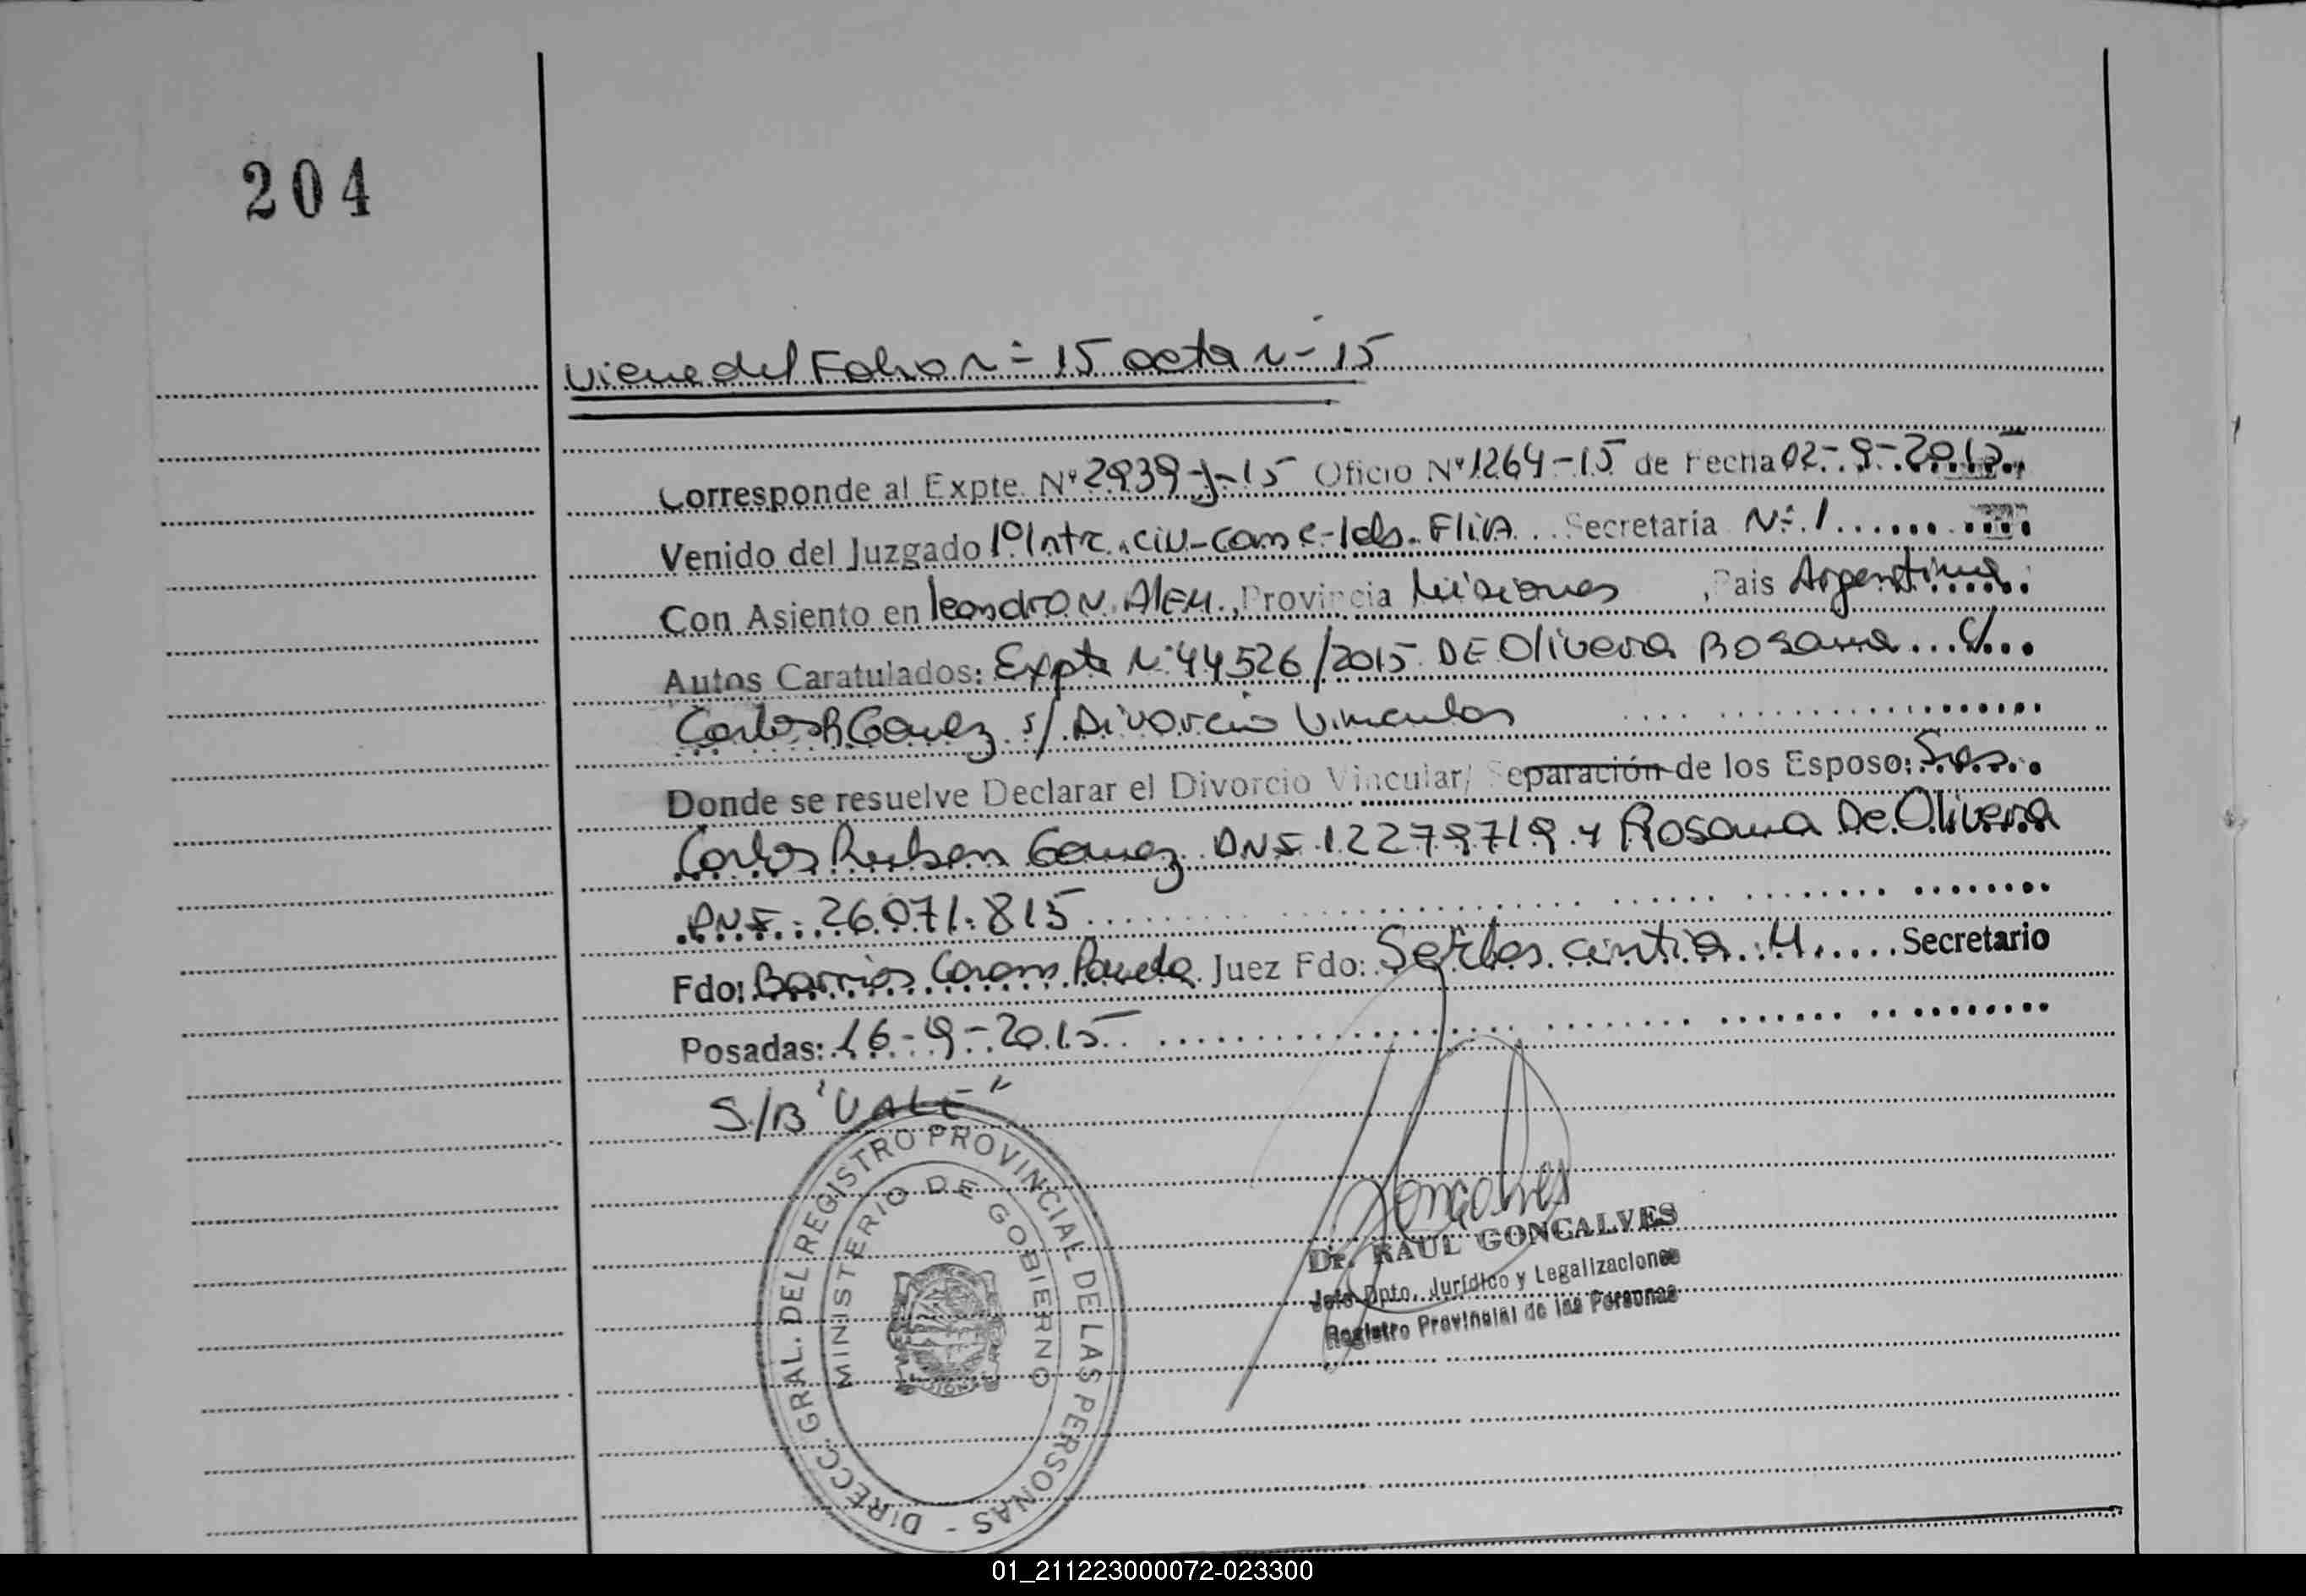 204
viene del Folio n= 15 acta n- 15
Corresponde al Expte. Nº 2939-J-15 Oficio Nº 1264-15 de Fecha 02-9-2015
Venido del Juzgado 1º Intc. civ-com e-lab. FliA... Secretaría Nº 1
Con Asiento en leandro N. AlEM., Provincia Misiones, Pais Argentina
Autos Caratulados: Expte Nº 44526/2015 DE Olivera Rosana... c/...
Carlos R Gomez s/ Divorcio Vincular
Donde se resuelve Declarar el Divorcio Vincular/ Separación de los Esposo: Sres.
Carlos Ruben Gomez DNI 12279719 y Rosana De Olivera
DNI. 26.071.815
Fdo: Barrios Caram Pamela. Juez Fdo: cintia M. Secretario
Posadas: 16-9-2015
S/B "VALE"
DIRECC. GRAL. DEL REGISTRO PROVINCIAL DE LAS PERSONAS -
MINISTERIO DE GOBIERNO
Goncalves
Dr. RAUL GONCALVES
Jefe Dpto. Jurídico y Legalizaciones
Registro Provincial de las Personas
01_211223000072-023300